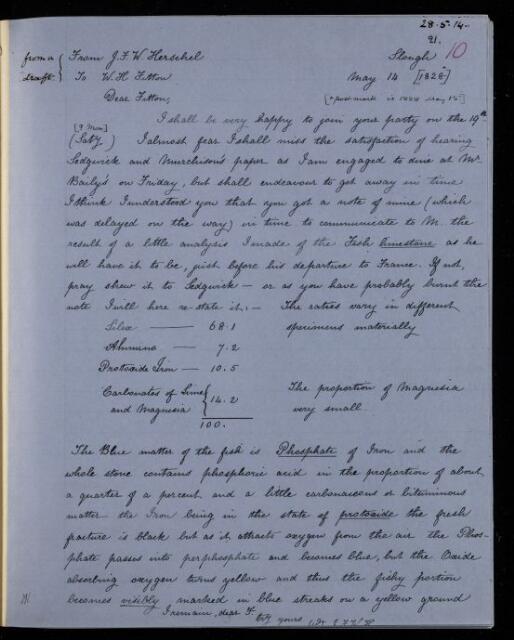 28.5.14.
21.
10
from a draft { From J. F. W. Herschel Slough
To W. H. Fitton May 14 [1828]
Dear Fitton, [post mark is 1828 May 15]
I shall be very happy to join your party on the 19th
[? Mon]
(Saty) I almost fear I shall miss the satisfaction of hearing
Sedgwick and Murchison's paper as I am engaged to dine at Mr
Baily's on Friday, but shall endeavour to get away in time
I think I understood you that you got a note of mine (which
was delayed on the way) in time to communicate to M. the
result of a little analysis I made of the Fish limestone as he
will have it to be, just before his departure to France. If not,
pray shew it to Sedgwick — or as you have probably burnt the
note I will here re-state it:— The ratios vary in different
Silex — 68.1 specimens materially
Alumina — 7.2
Protoxide Iron — 10.5
Carbonates of Lime and Magnesia } 14.2 The proportion of Magnesia
very small
100.
The Blue matter of the fish is Phosphate of Iron and the
whole stone contains phosphoric acid in the proportion of about
a quarter of a percent and a little carbonaceous or bituminous
matter the Iron being in the state of protoxide the fresh
fracture is black but as it attracts oxygen from the air the Phos-
phate passes into perphosphate and becomes blue, but the Oxide
absorbing oxygen turns yellow and thus the fishy portion
becomes visibly marked in blue streaks on a yellow ground
I remain, dear F.
try yours